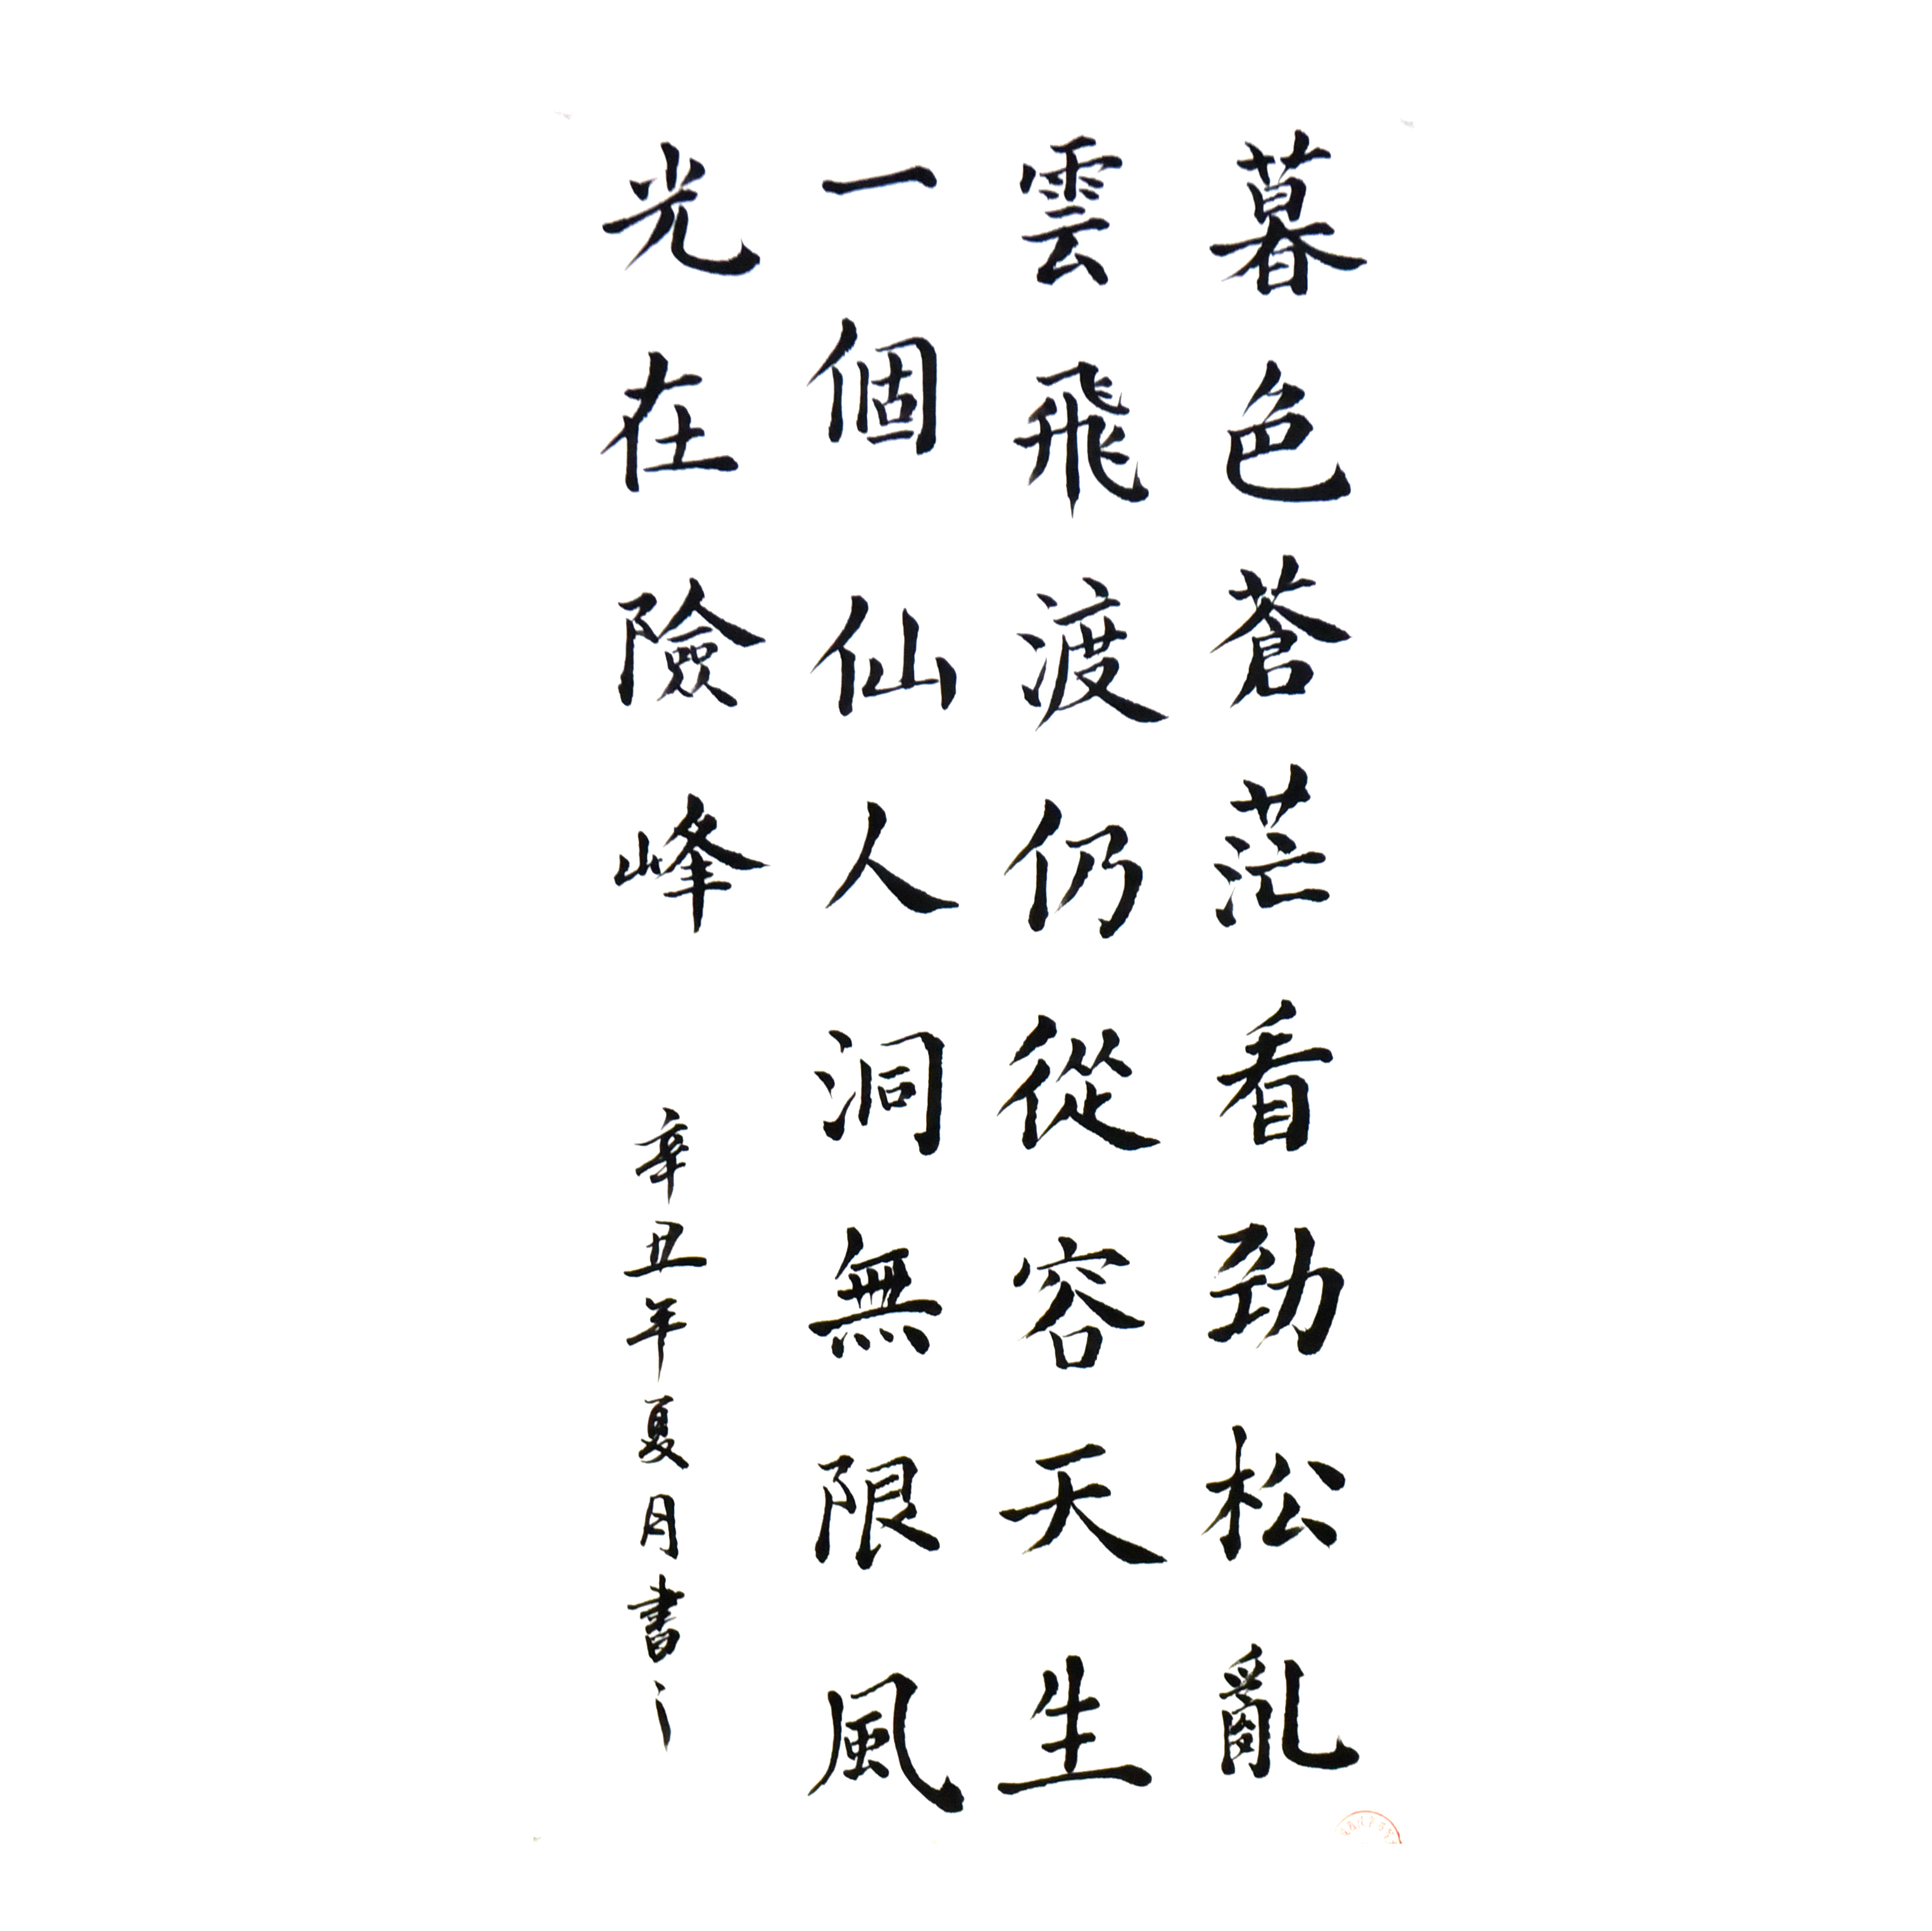 暮色蒼茫看劲松亂
雲飛渡仍從容天生
一個仙人洞無限風
光在險峰
辛丑年夏月書之